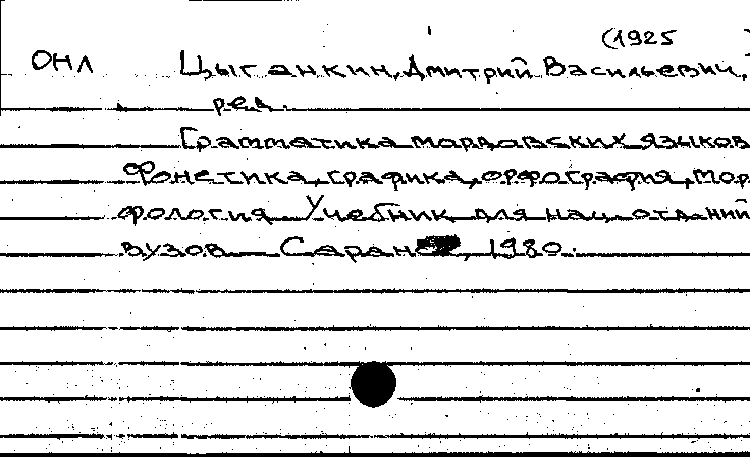 (1925
ОНЛ Цыганкин, Дмитрий Васильевич,
ред.
Грамматика мордовских языков
Фонетика, графика, орфография, мор
фология Учебник для нац. отд-ний
вузов Саранск, 1980.